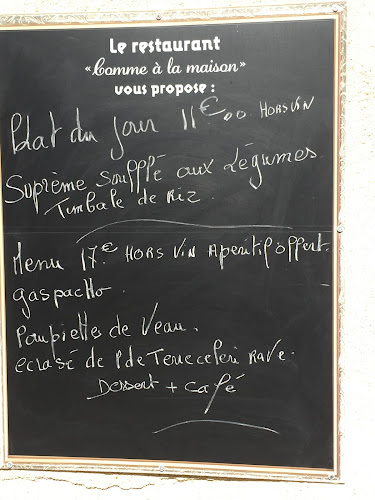 Le restaurant
«Comme à la maison»
vous propose :
Plat du jour 11€00 HORS VIN
Suprême Soufflé aux Légumes
Timbale de Riz.
Menu 17.€ HORS VIN Aperitif offert.
gaspacho.
Paupiettes de Veau.
ecrasé de P de Terre celeri Rave.
Dessert + Café